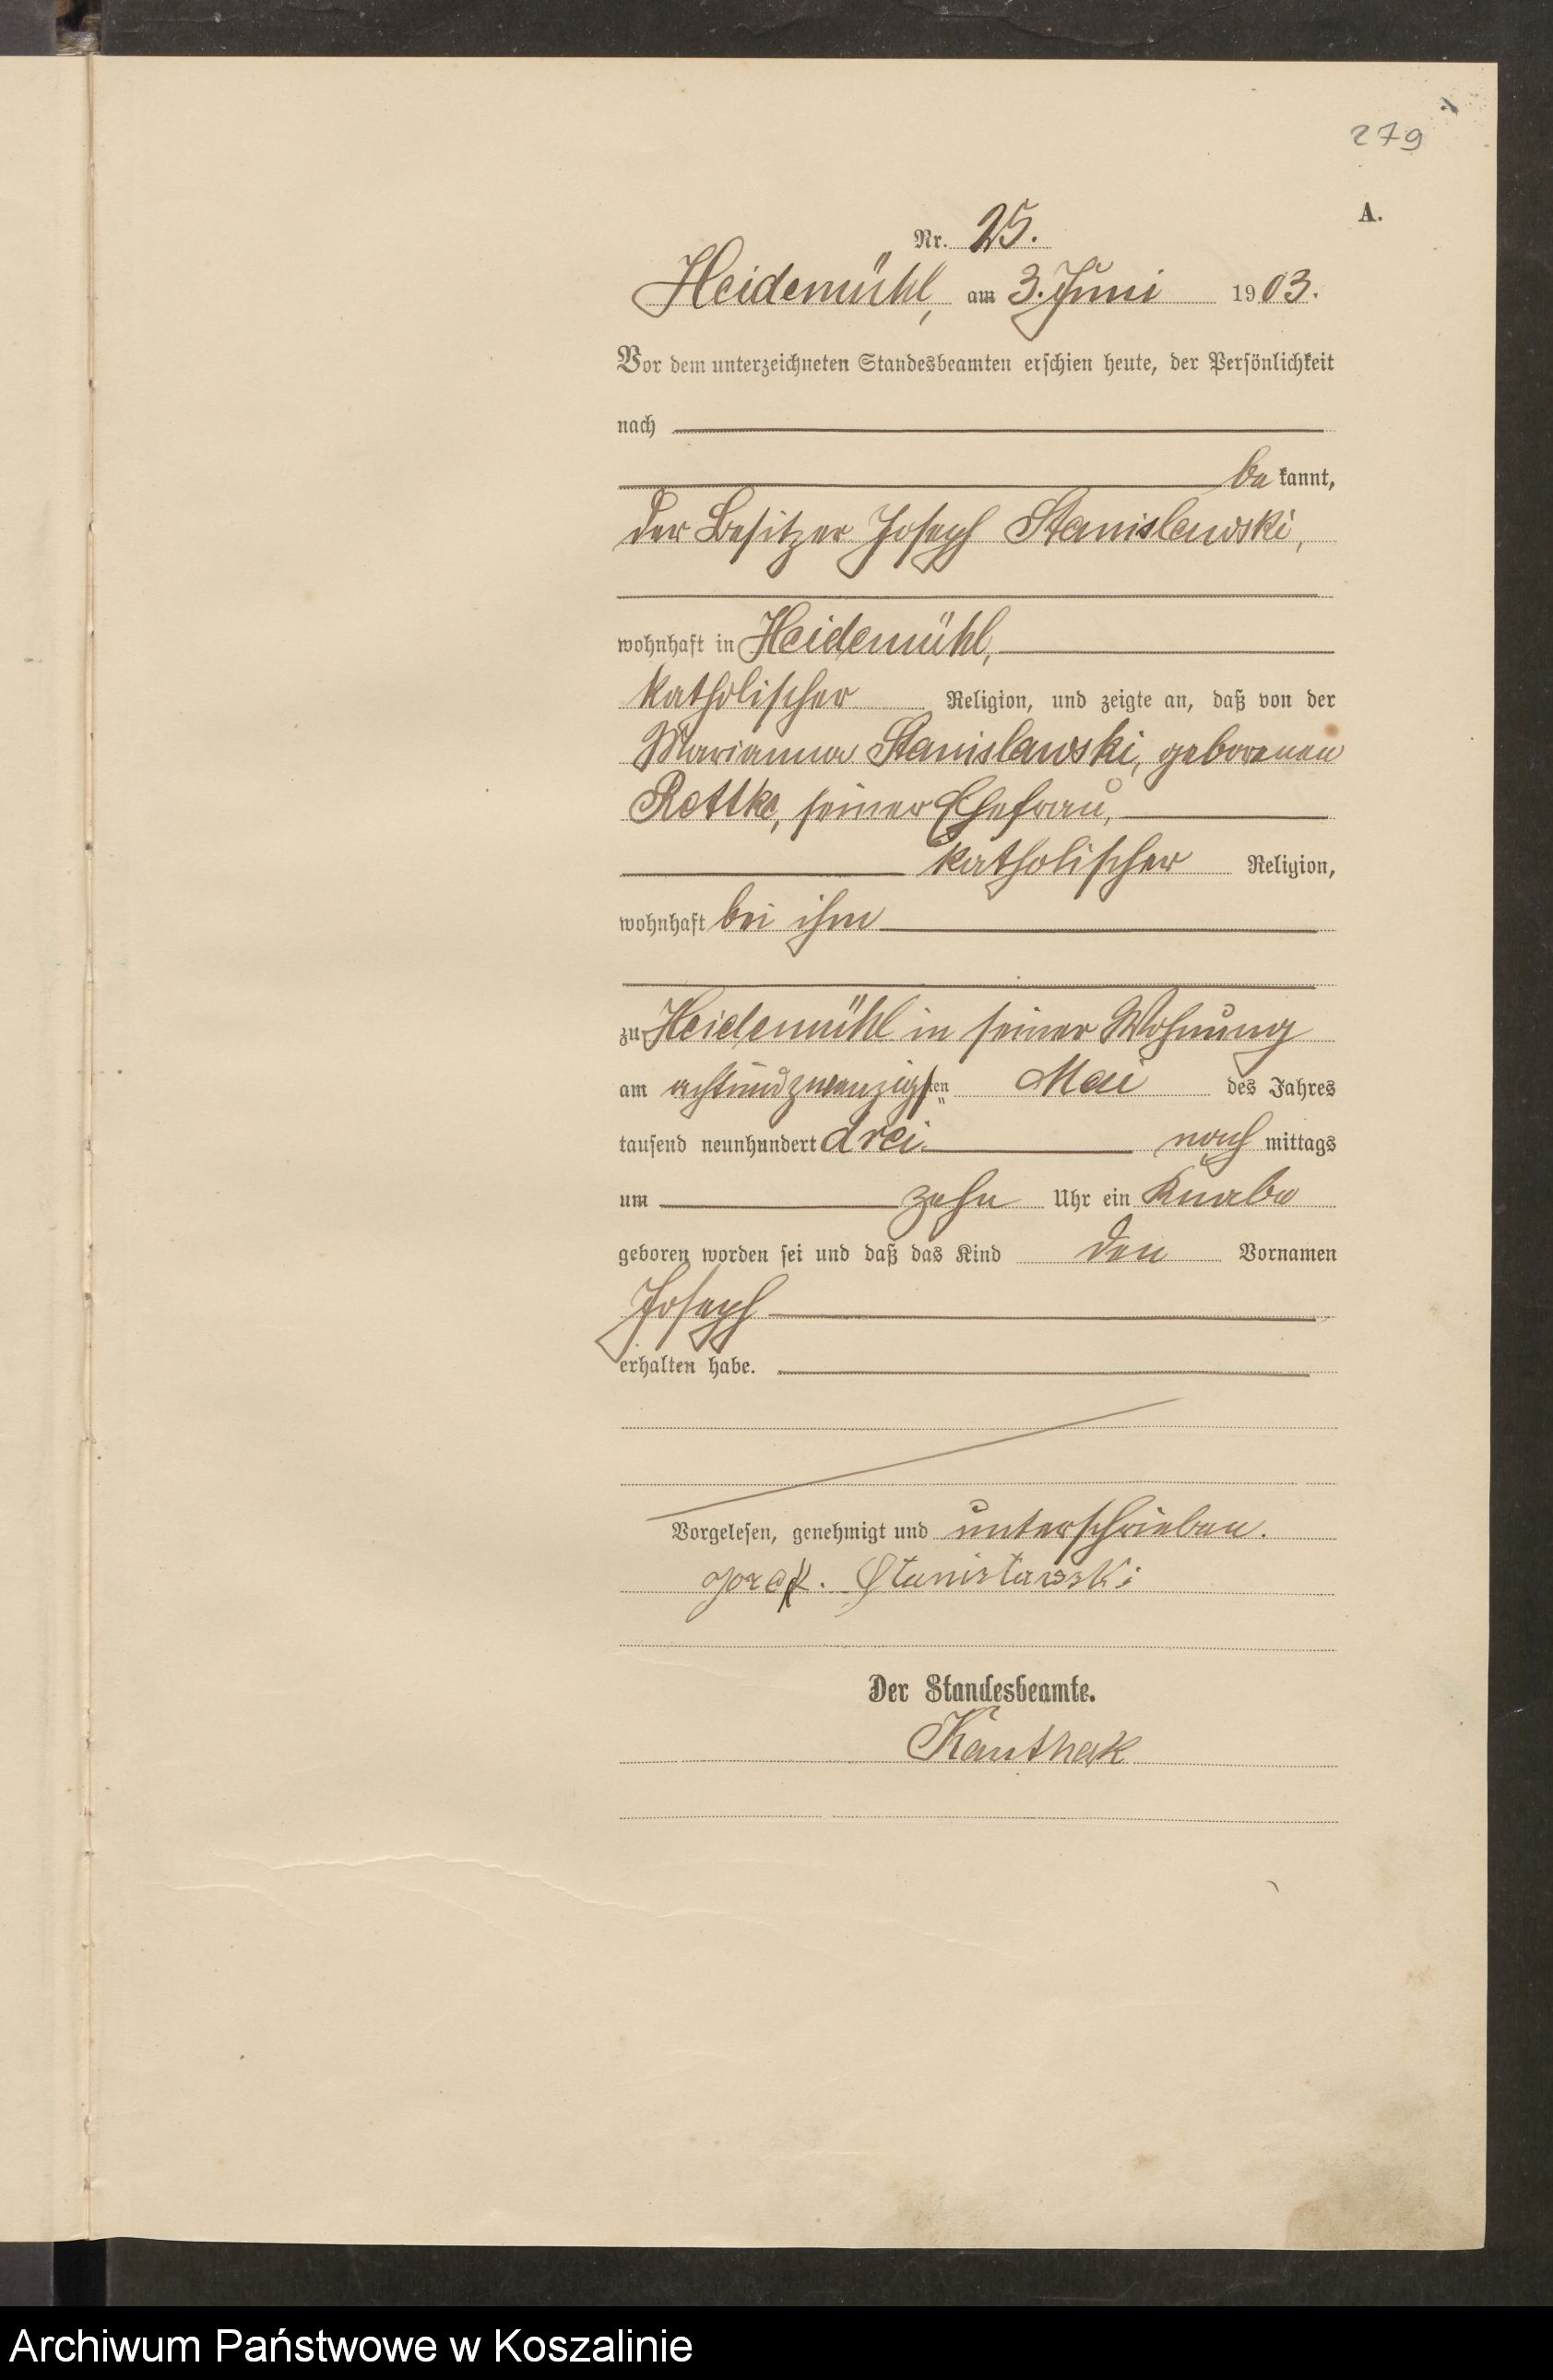 279
A.
Nr. 25.
Heidemühl, am 3. Juni 1903.
Vor dem unterzeichneten Standesbeamten erschien heute, der Persönlichkeit
nach
be kannt,
der Besitzer Joseph Stanislawski,
wohnhaft in Heidemühl,
katholischer Religion, und zeigte an, daß von der
Marianna Stanislawski, geborenen
Rettke, seiner Ehefrau,
katholischer Religion,
wohnhaft bei ihm
zu Heidemühl in seiner Wohnung
am achtundzwanzigsten Mai des Jahres
tausend neunhundert drei nach mittags
um zehn Uhr ein Knabe
geboren worden sei und daß das Kind den Vornamen
Joseph
erhalten habe.
Vorgelesen, genehmigt und unterschrieben.
Stanislawski
Der Standesbeamte.
Kauthak
Archiwum Państwowe w Koszalinie